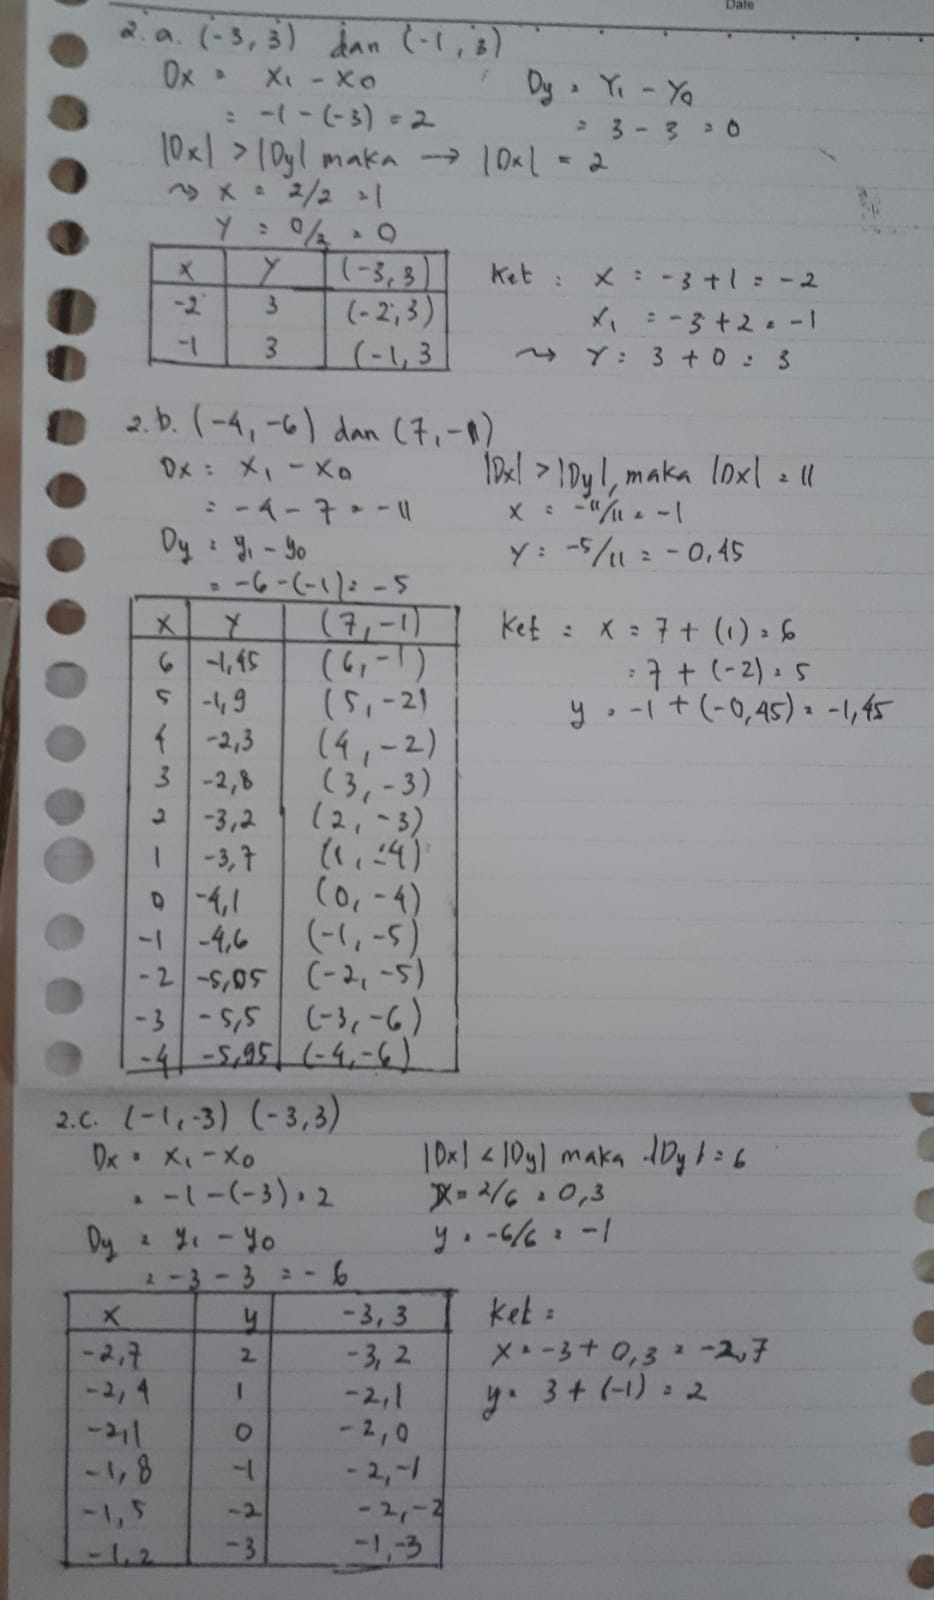 Date
2. a. (-3, 3) dan (-1, 3)
Dx = X1 - X0
= -1 - (-3) = 2
Dy = Y1 - Y0
= 3 - 3 = 0
|Dx| > |Dy| maka → |Dx| = 2
~> X = 2/2 = 1
Y = 0/2 = 0
X Y (-3, 3)
-2 3 (-2, 3)
-1 3 (-1, 3
Ket : X = -3 + 1 = -2
X1 = -3 + 2 = -1
~> Y = 3 + 0 = 3
2. b. (-4, -6) dan (7, -1)
Dx = X1 - X0
= -4 - 7 = -11
Dy = y1 - y0
= -6 - (-1) = -5
|Dx| > |Dy|, maka |Dx| = 11
X = -11/11 = -1
Y = -5/11 = -0,45
X Y (7, -1)
6 -1,45 (6, -1)
5 -1,9 (5, -2)
4 -2,3 (4, -2)
3 -2,8 (3, -3)
2 -3,2 (2, -3)
1 -3,7 (1, -4)
0 -4,1 (0, -4)
-1 -4,6 (-1, -5)
-2 -5,05 (-2, -5)
-3 -5,5 (-3, -6)
-4 -5,95 (-4, -6)
Ket = X = 7 + (1) = 6
= 7 + (-2) = 5
y = -1 + (-0,45) = -1,45
2.c. (-1, -3) (-3, 3)
Dx = X1 - X0
= -1 - (-3) = 2
Dy = y1 - y0
= -3 - 3 = -6
|Dx| < |Dy| maka |Dy| = 6
X = 2/6 = 0,3
y = -6/6 = -1
X y -3, 3
-2,7 2 -3, 2
-2,4 1 -2, 1
-2,1 0 -2, 0
-1,8 -1 -2, -1
-1,5 -2 -2, -2
-1,2 -3 -1, -3
Ket =
X = -3 + 0,3 = -2,7
y = 3 + (-1) = 2